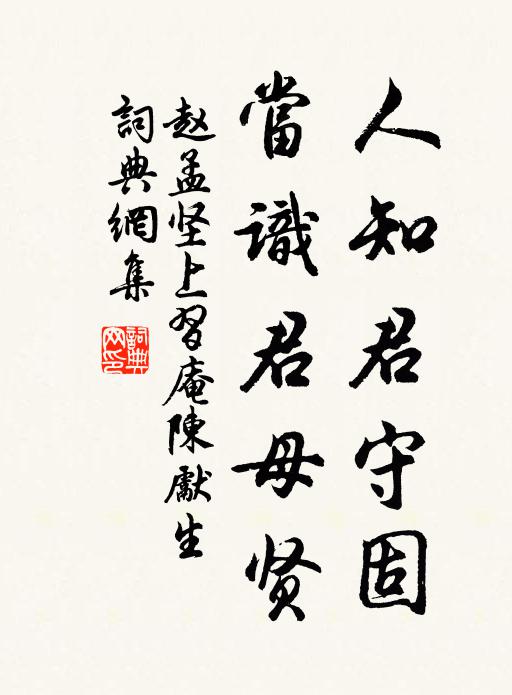 人知君守固
當識君母贤
赵孟坚上習庵陳獻生
詞典網集
詞典网印